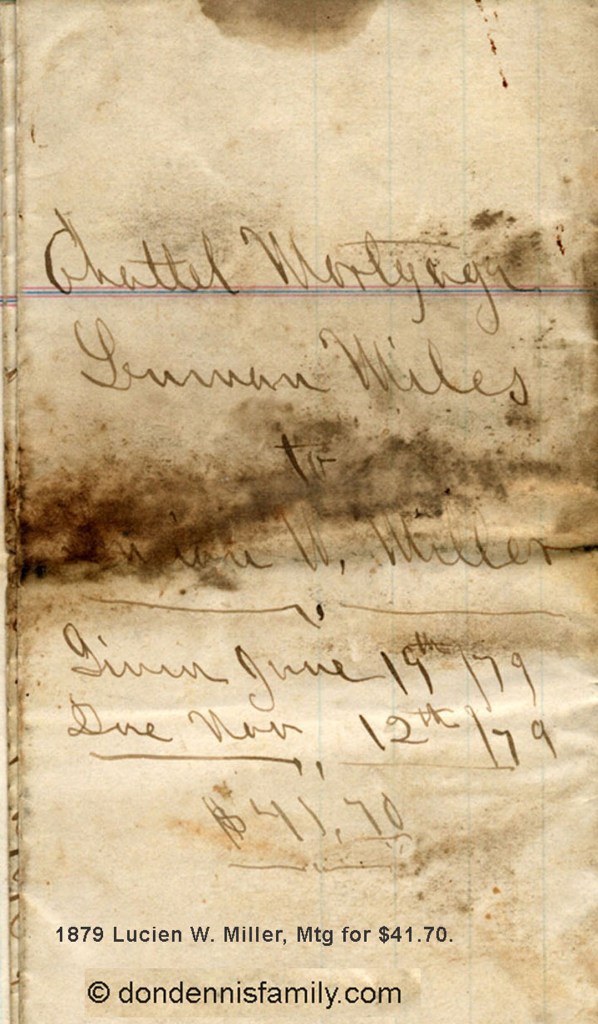 Chattel Mortgage
Lenman Miles
to
W. Miller
Given June 19th /79
Due Nov 12th /79
$41,70
1879 Lucien W. Miller, Mtg for $41.70.
© dondennisfamily.com